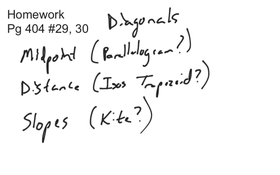 Homework
Pg 404 #29, 30
Diagonals
Midpoint (Parallelogram?)
Distance (Isos Trapezoid?)
Slopes (Kite?)